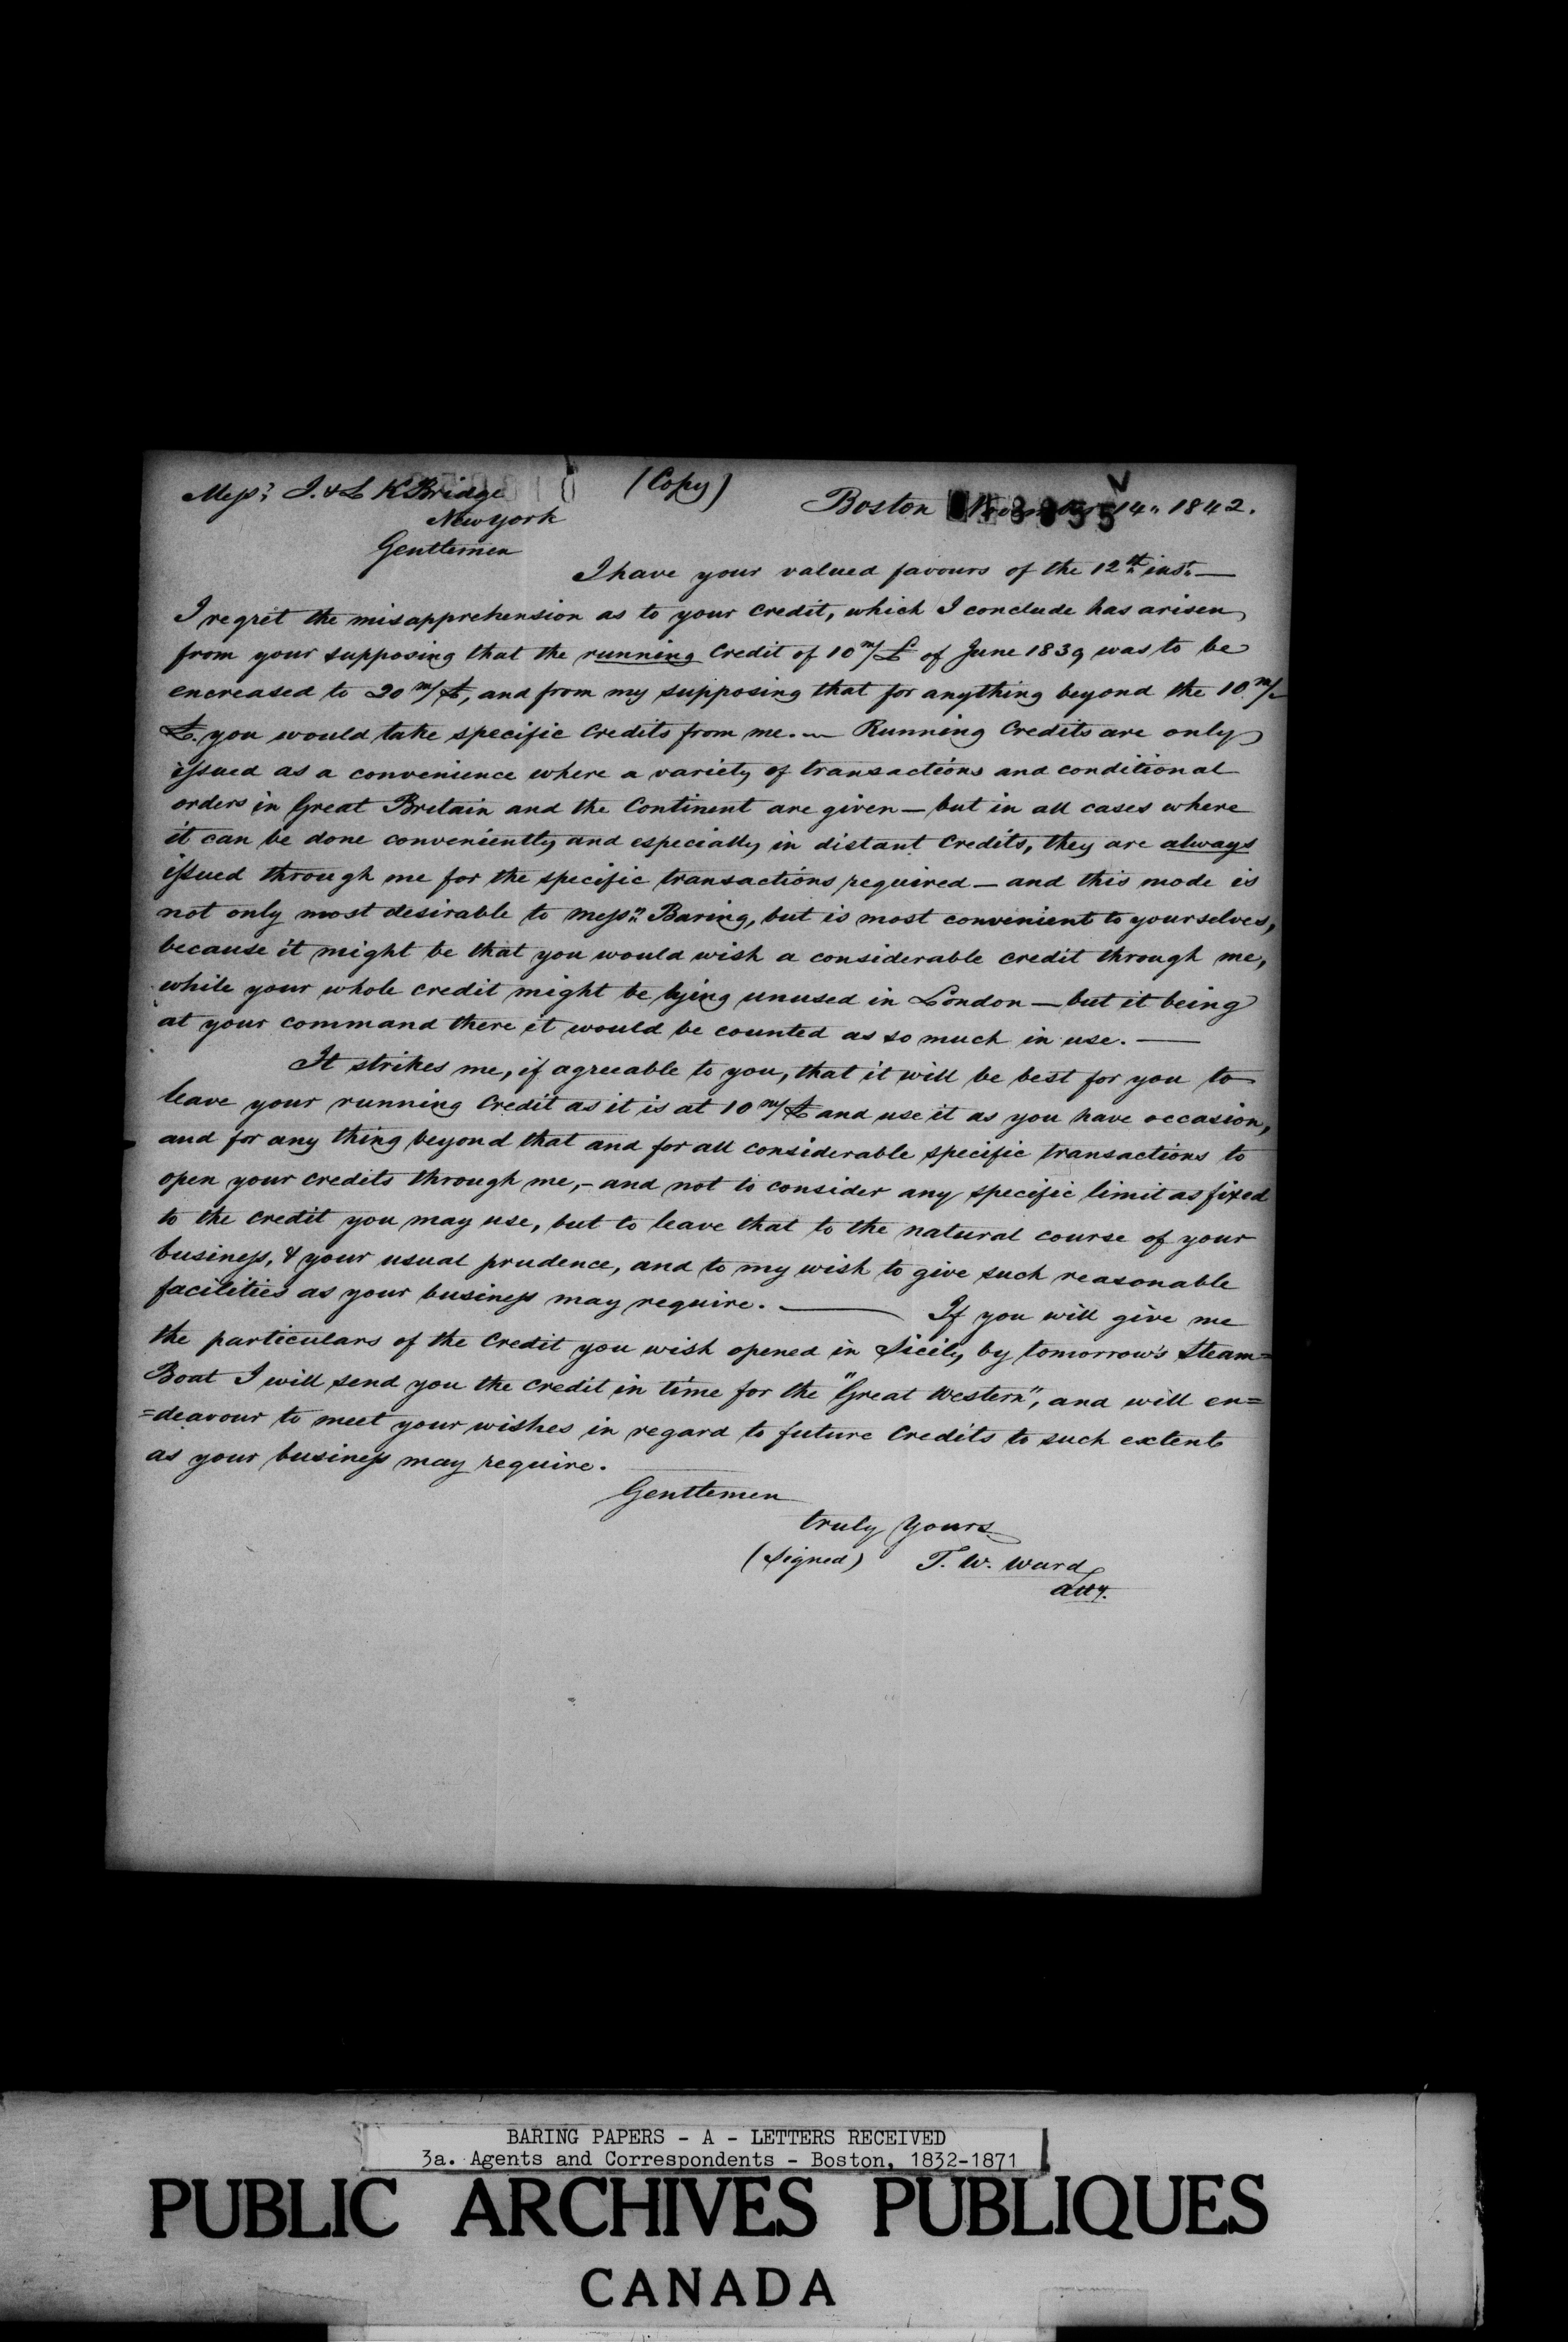 (Copy)
Messrs J. & L K Bridge
Boston November 14" 1842.
New York
Gentlemen
I have your valued favours of the 12th inst. —
I regret the misapprehension as to your credit, which I conclude has arisen
from your supposing that the running Credit of 10 m/£ of June 1839 was to be
encreased to 20 m/£, and from my supposing that for anything beyond the 10 m/
£. you would take specific Credits from me. — Running Credits are only
issued as a convenience where a variety of transactions and conditional
orders in Great Britain and the Continent are given — but in all cases where
it can be done conveniently and especially in distant Credits, they are always
issued through me for the specific transactions required — and this mode is
not only most desirable to Messrs Baring, but is most convenient to yourselves,
because it might be that you would wish a considerable credit through me,
while your whole credit might be lying unused in London — but it being
at your command there it would be counted as so much in use. —
It strikes me, if agreeable to you, that it will be best for you to
leave your running Credit as it is at 10 m/£ and use it as you have occasion,
and for any thing beyond that and for all considerable specific transactions to
open your credits through me, – and not to consider any specific limit as fixed
to the credit you may use, but to leave that to the natural course of your
business, & your usual prudence, and to my wish to give such reasonable
facilities as your business may require. — If you will give me
the particulars of the Credit you wish opened in Sicily by tomorrow's Steam=
Boat I will send you the credit in time for the "Great Western", and will en=
=deavour to meet your wishes in regard to future Credits to such extent
as your business may require.
Gentlemen
truly yours
(Signed) T. W. Ward
atty.
BARING PAPERS - A - LETTERS RECEIVED
3a. Agents and Correspondents - Boston, 1832-1871
PUBLIC ARCHIVES PUBLIQUES
CANADA